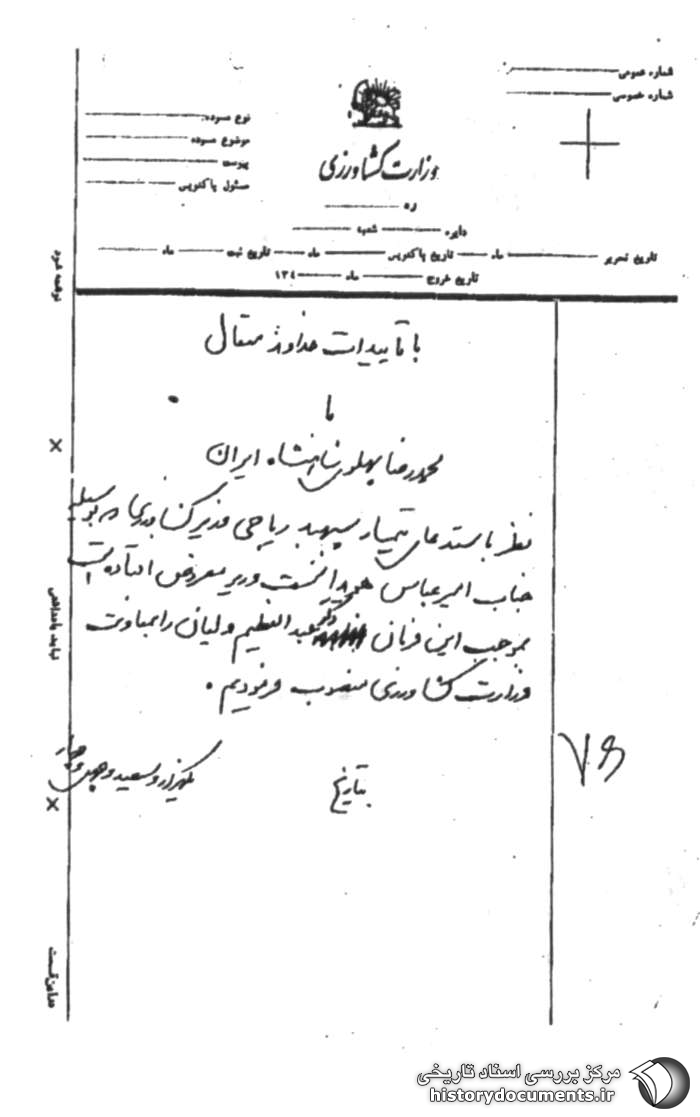 شماره عمومی
شماره خصوصی
نوع مسوده
موضوع مسوده
پیوست
مسئول پاکنویس
وزارت کشاورزی
ره
دایره شعبه
تاریخ تحریر ماه تاریخ پاکنویس ماه تاریخ ثبت ماه
تاریخ خروج ماه ۱۳۴
با تأییدات خداوند متعال
ما
محمدرضا پهلوی شاهنشاه ایران
نظر باستدعای تیمسار سپهبد ریاحی وزیر کشاورزی که بوسیله
جناب امیرعباس هویدا نخست وزیر معروض افتاده است
بموجب این فرمان دکتر عبدالعظیم ولیان را بمعاونت
وزارت کشاورزی منصوب فرمودیم.
بتاریخ
یکهزار و سیصد و چهل و چهار
۷۶
مرکز بررسی اسناد تاریخی
historydocuments.ir